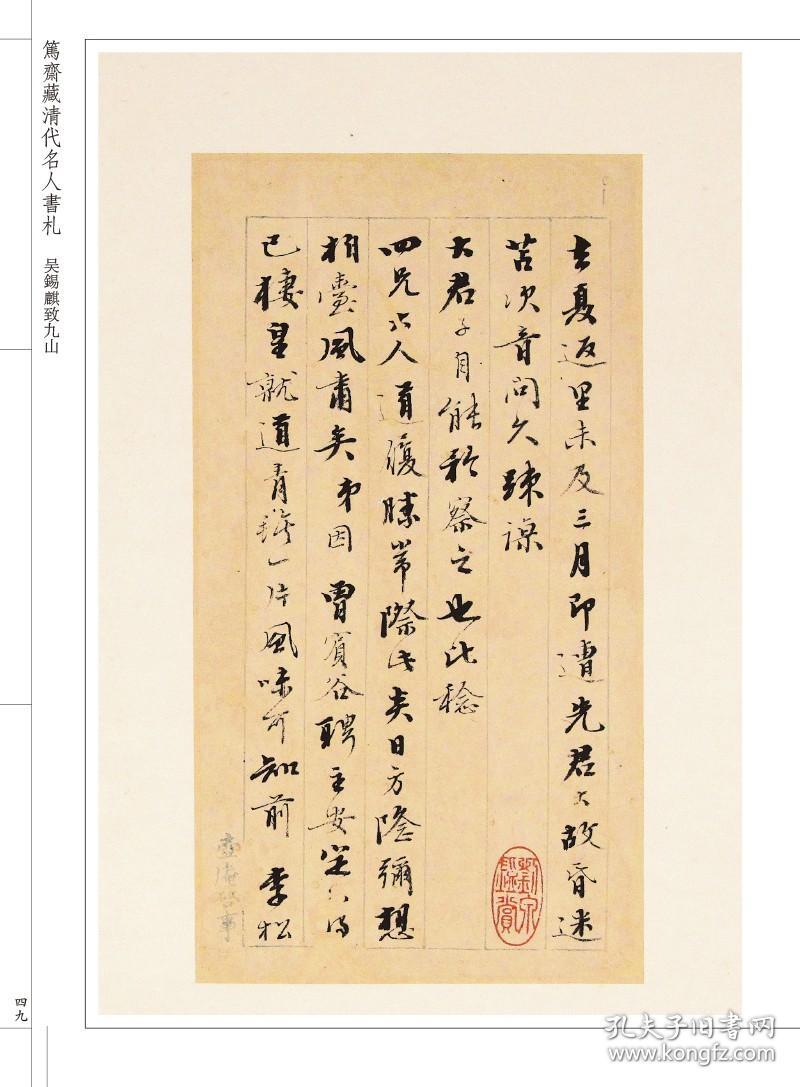 篤齋藏清代名人書札 吴錫麒致九山
去夏返里未及三月即遭先君大故昏迷
苫次音問久疎諒
大君子自能矜察之也比稔
四兄大人道履勝常際此炎日方隆彌想
柏臺風肅矣弟因曾賓谷聘主安定
已棲皇就道青氊一片風味可知前李松
壺庵啓事
四九
孔夫子旧书网
www.kongfz.com